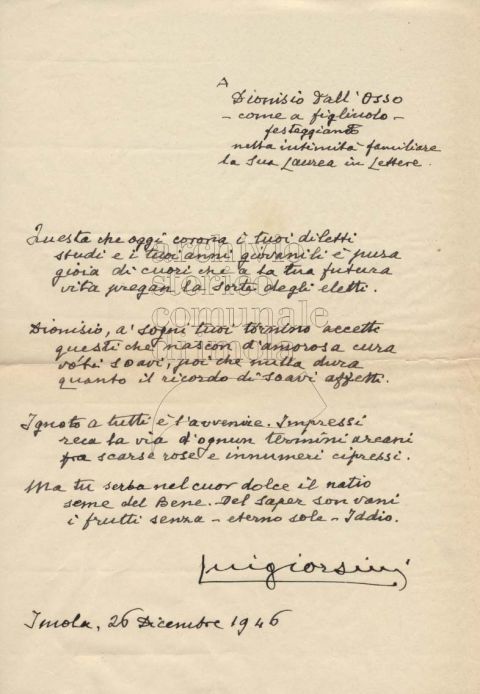 A
Dionisio Dall'Osso
– come a figliuolo –
festeggiante
nella intimità familiare
la sua Laurea in Lettere.
Questa che oggi corona i tuoi diletti
studi e i tuoi anni giovanili è pura
gioia di cuori che a la tua futura
vita pregan la sorte degli eletti.
Dionisio, a' sogni tuoi tornino accetti
questi che nascon d'amorosa cura
voti soavi, poi che nulla dura
quanto il ricordo di soavi affetti.
Ignoto a tutti è l'avvenire. Impressi
reca la via d'ognun termini arcani
fra scarse rose e innumeri cipressi.
Ma tu serba nel cuor dolce il natio
seme del Bene. Del saper son vani
i frutti senza – eterno sole – Iddio.
Luigi Orsini
Imola, 26 Dicembre 1946
archivio
storico
comunale
imola